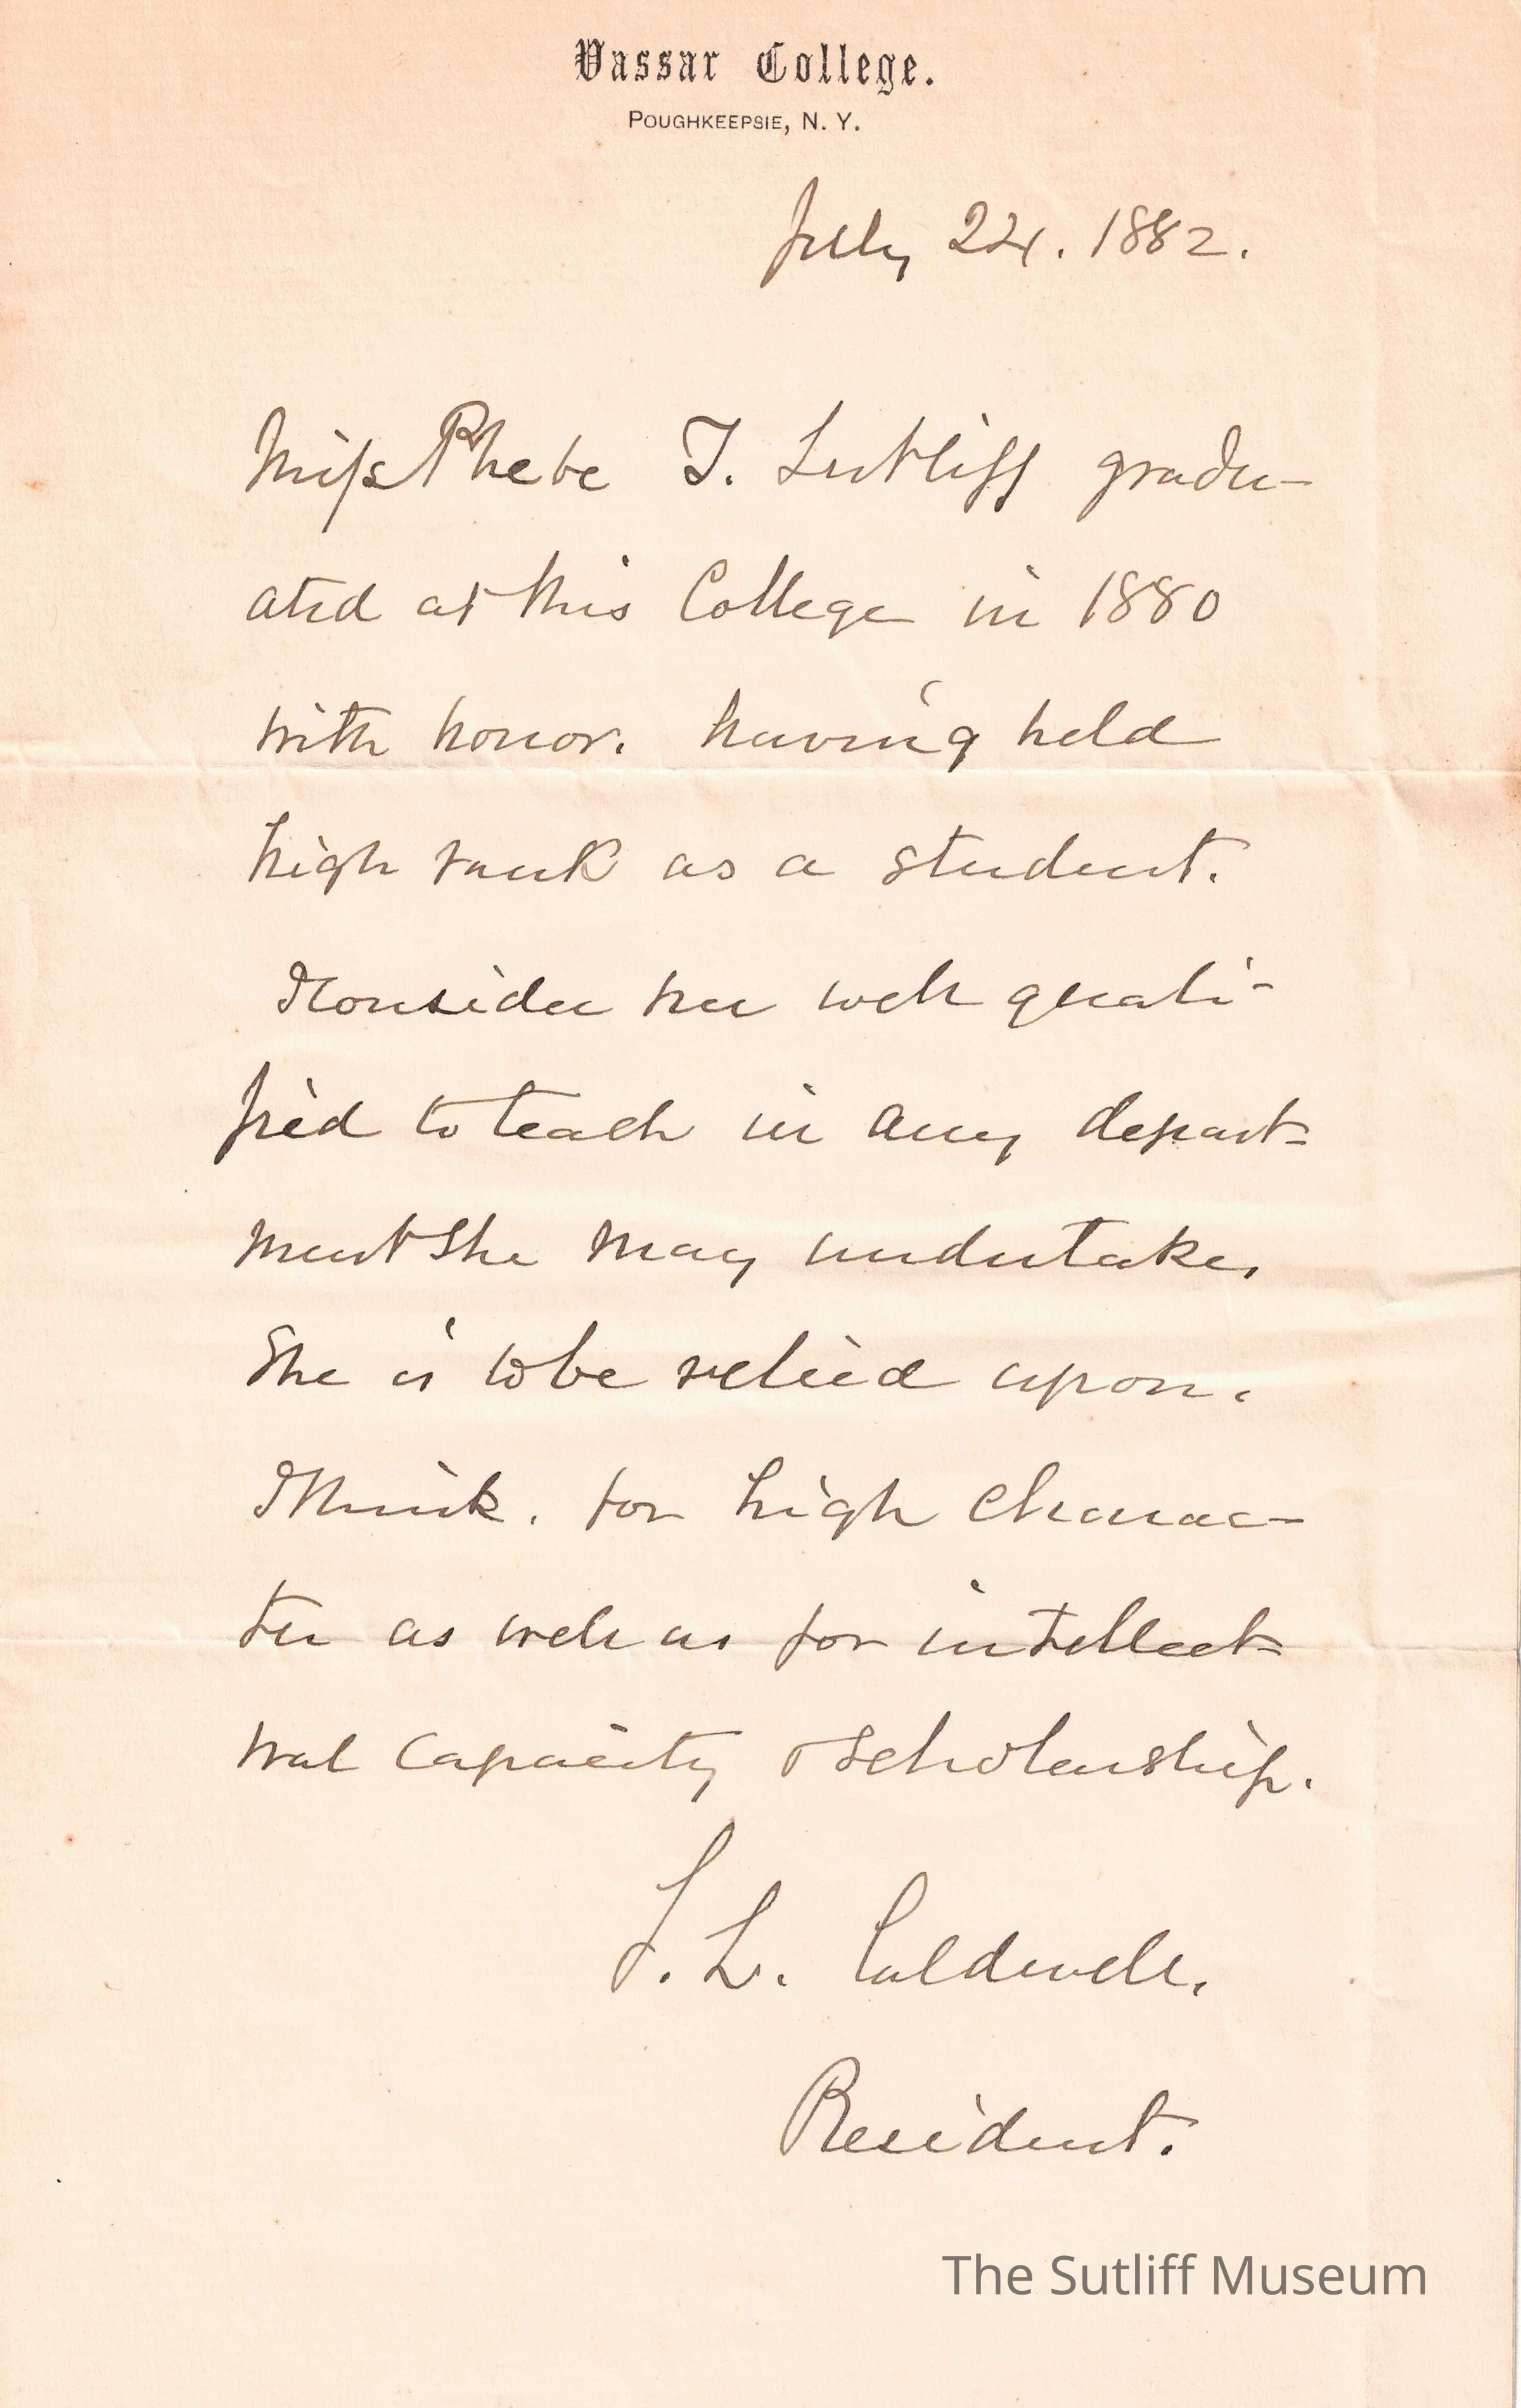 Vassar College.
POUGHKEEPSIE, N. Y.
July 24. 1882.
Miss Phebe T. Sutliff gradu-
ated at this College in 1880
with honor. having held
high rank as a student.
I consider her well quali-
fied to teach in any depart-
ment she may undertake,
She is to be relied upon.
I think. for high charac-
ter as well as for intellect-
ual capacity & scholarship.
S. L. Caldwell.
President.
The Sutliff Museum